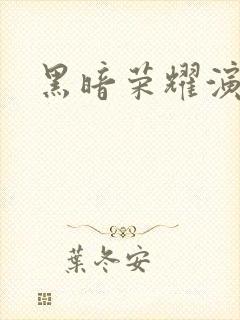 黑暗荣耀演
葉冬安